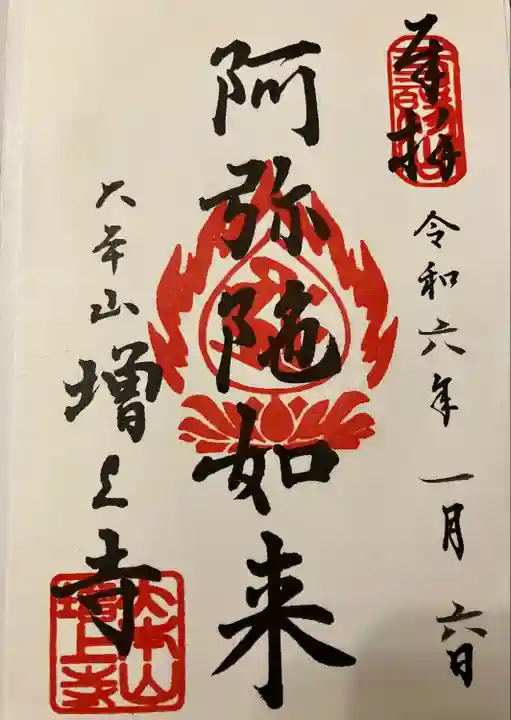 奉拝
令和六年一月六日
阿弥陀如来
大本山増上寺
大本山
増上寺